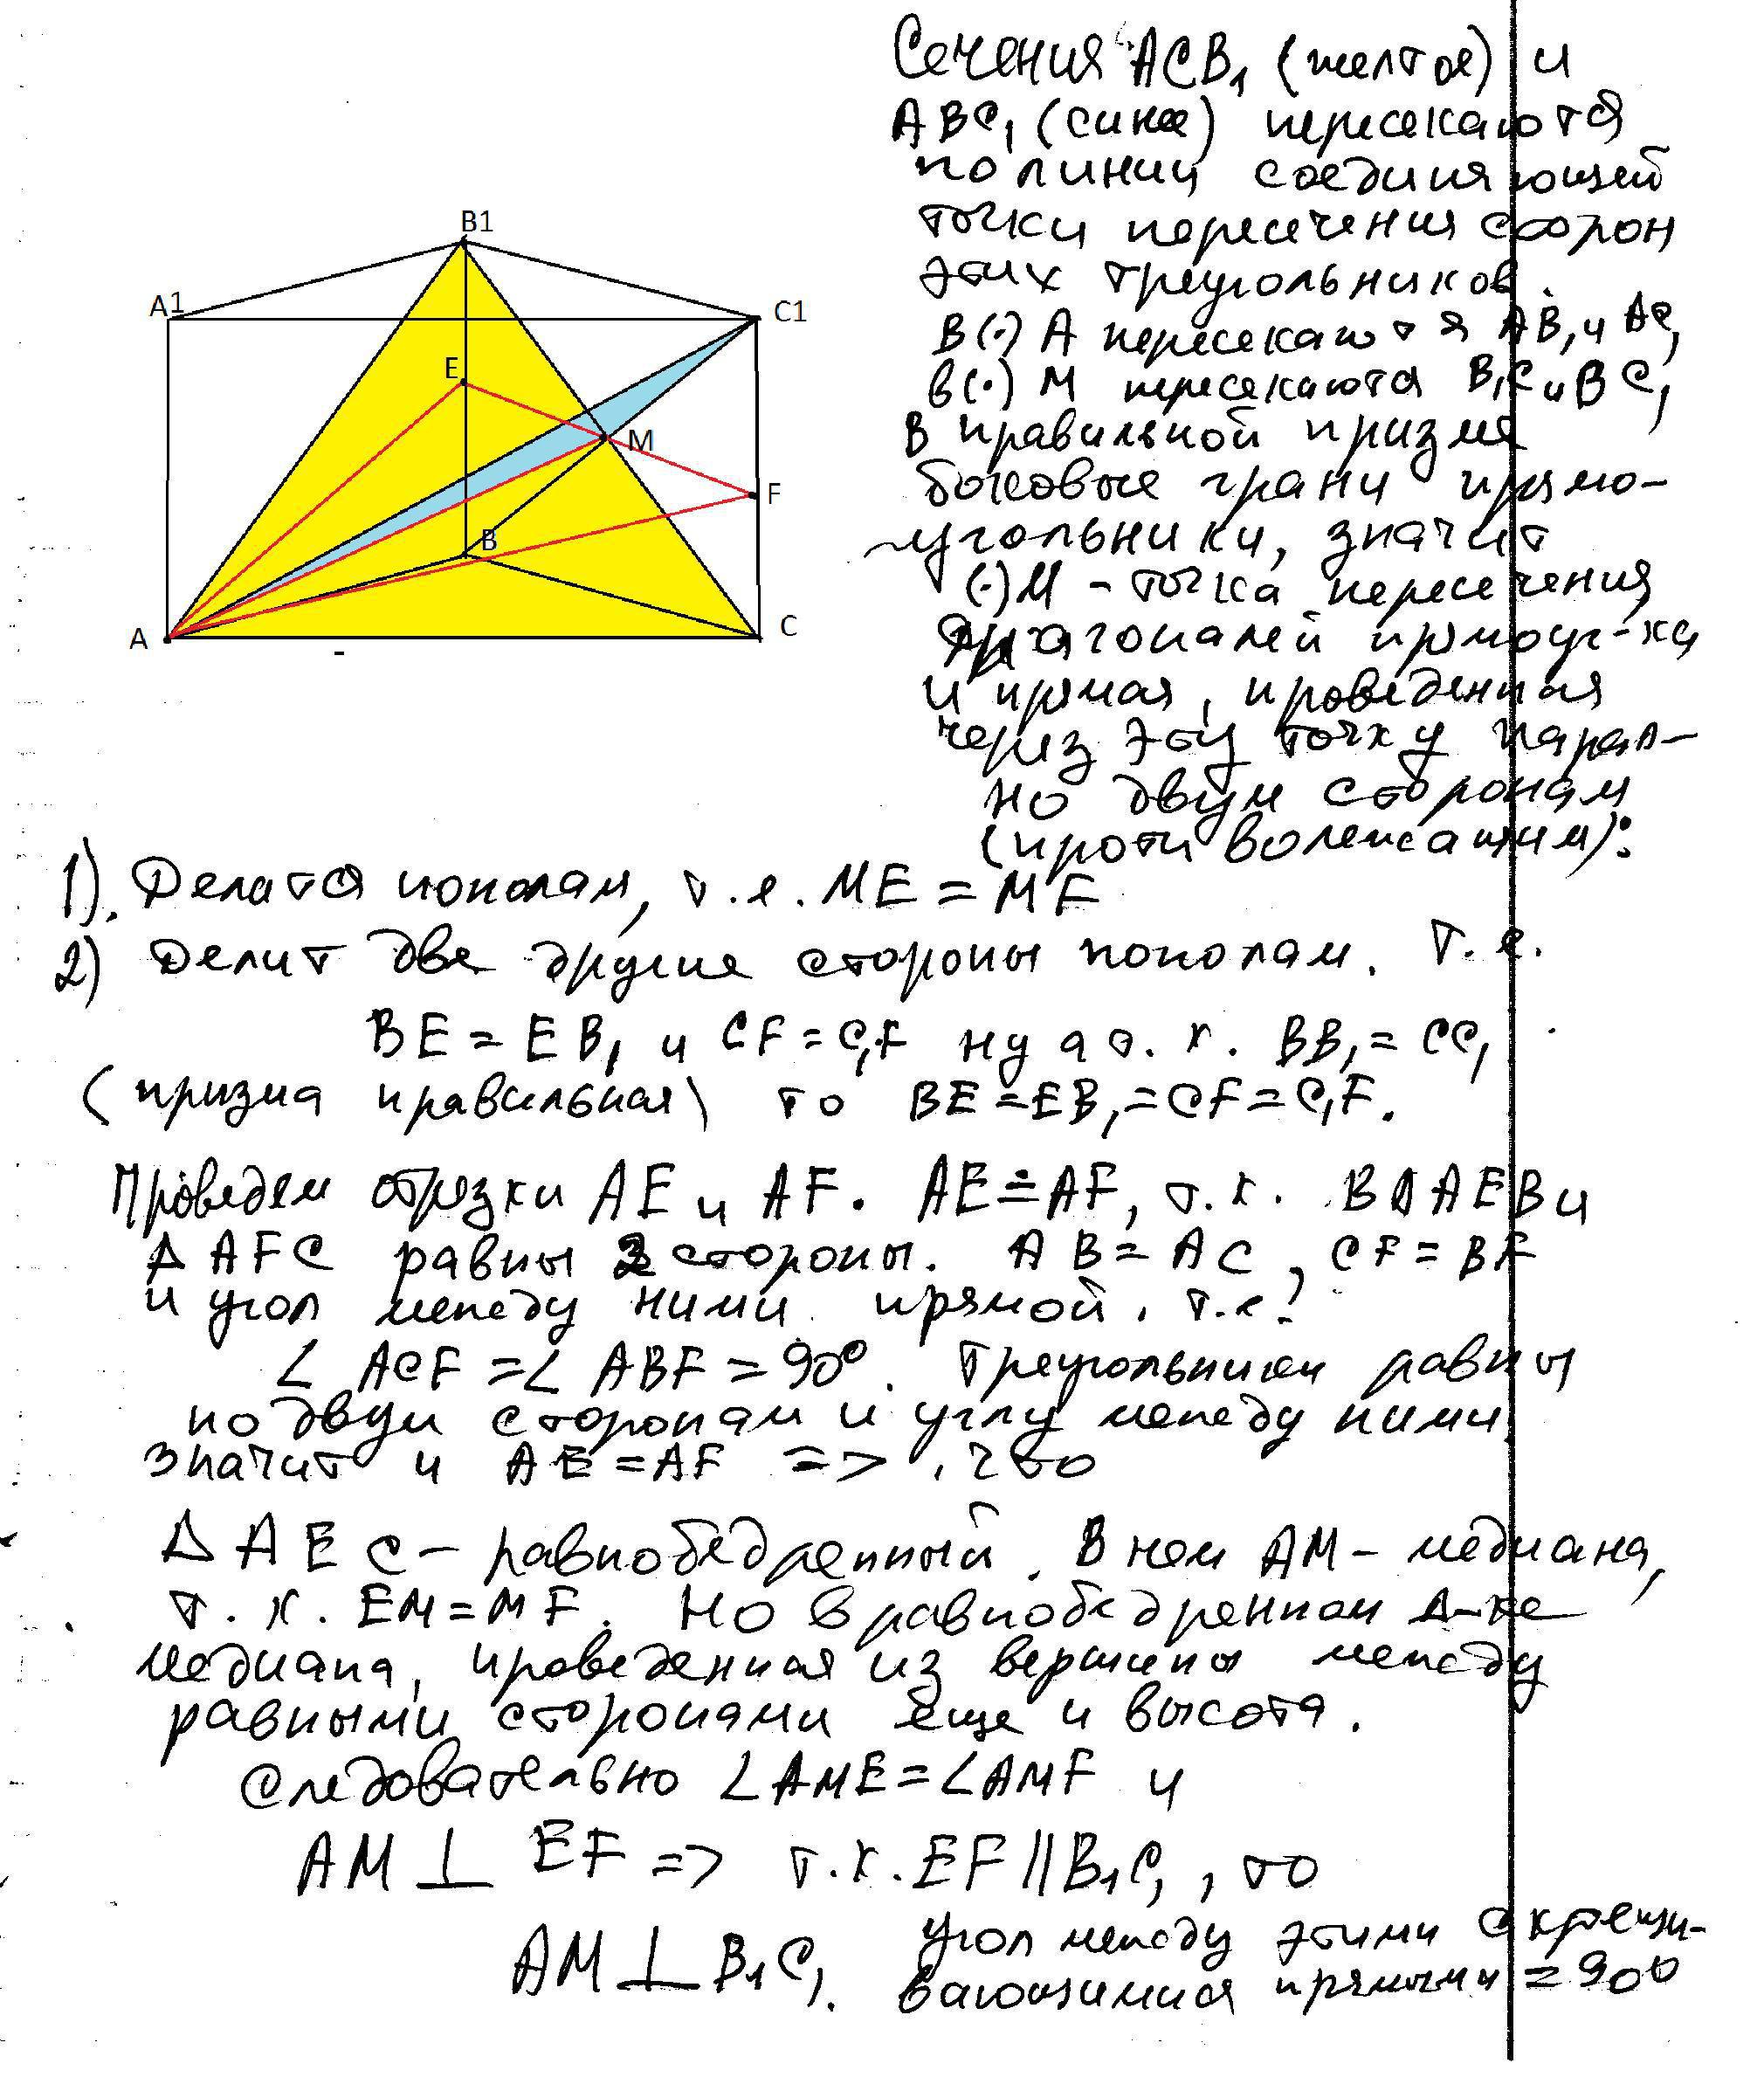 Сечения ACB₁ (желтое) и
ABC₁ (синее) пересекаются
по линии соединяющей
точки пересечения сторон
этих треугольников.
В (·) A пересекаются AB₁ и AC₁
в (·) M пересекаются B₁C и BC₁
В правильной призме
боковые грани прямо-
угольники, значит
(·) M - точка пересечения
диагоналей прямоуг-ка
и прямая, проведенная
через эту точку парал-
но двум сторонам
(противолежащим):
B1
A1
C1
E
M
F
B
A
C
1). Делится пополам, т.е. ME = MF
2) Делит две другие стороны пополам. Т.е.
BE = EB₁ и CF = C₁F ну а т.к. BB₁ = CC₁
(призма правильная) то BE = EB₁ = CF = C₁F.
Проведем отрезки AE и AF. AE = AF, т.к. В Δ AEB и
Δ AFC равны 2 стороны. AB = AC, CF = BF
и угол между ними прямой, т.е.
∠ ACF = ∠ ABF = 90°. Треугольники равны
по двум сторонам и углу между ними,
значит и AE = AF => , что
Δ AEC - равнобедренный. В нем AM - медиана,
т.к. EM = MF. Но в равнобедренном Δ-ке
медиана, проведенная из вершины между
равными сторонами еще и высота.
Следовательно ∠AME = ∠AMF и
AM ⊥ EF => т.к. EF || B₁C₁, то
AM ⊥ B₁C₁. угол между этими скрещи-
вающимися прямыми = 90°